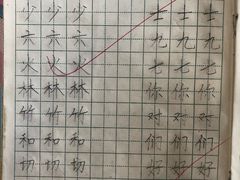 少 少 少 士 士 士
六 六 六 九 九 九
火 火 火 七 七 七
林 林 林 你 你 你
竹 竹 竹 对 对 对
和 和 和 们 们 们
切 切 切 好 好 好